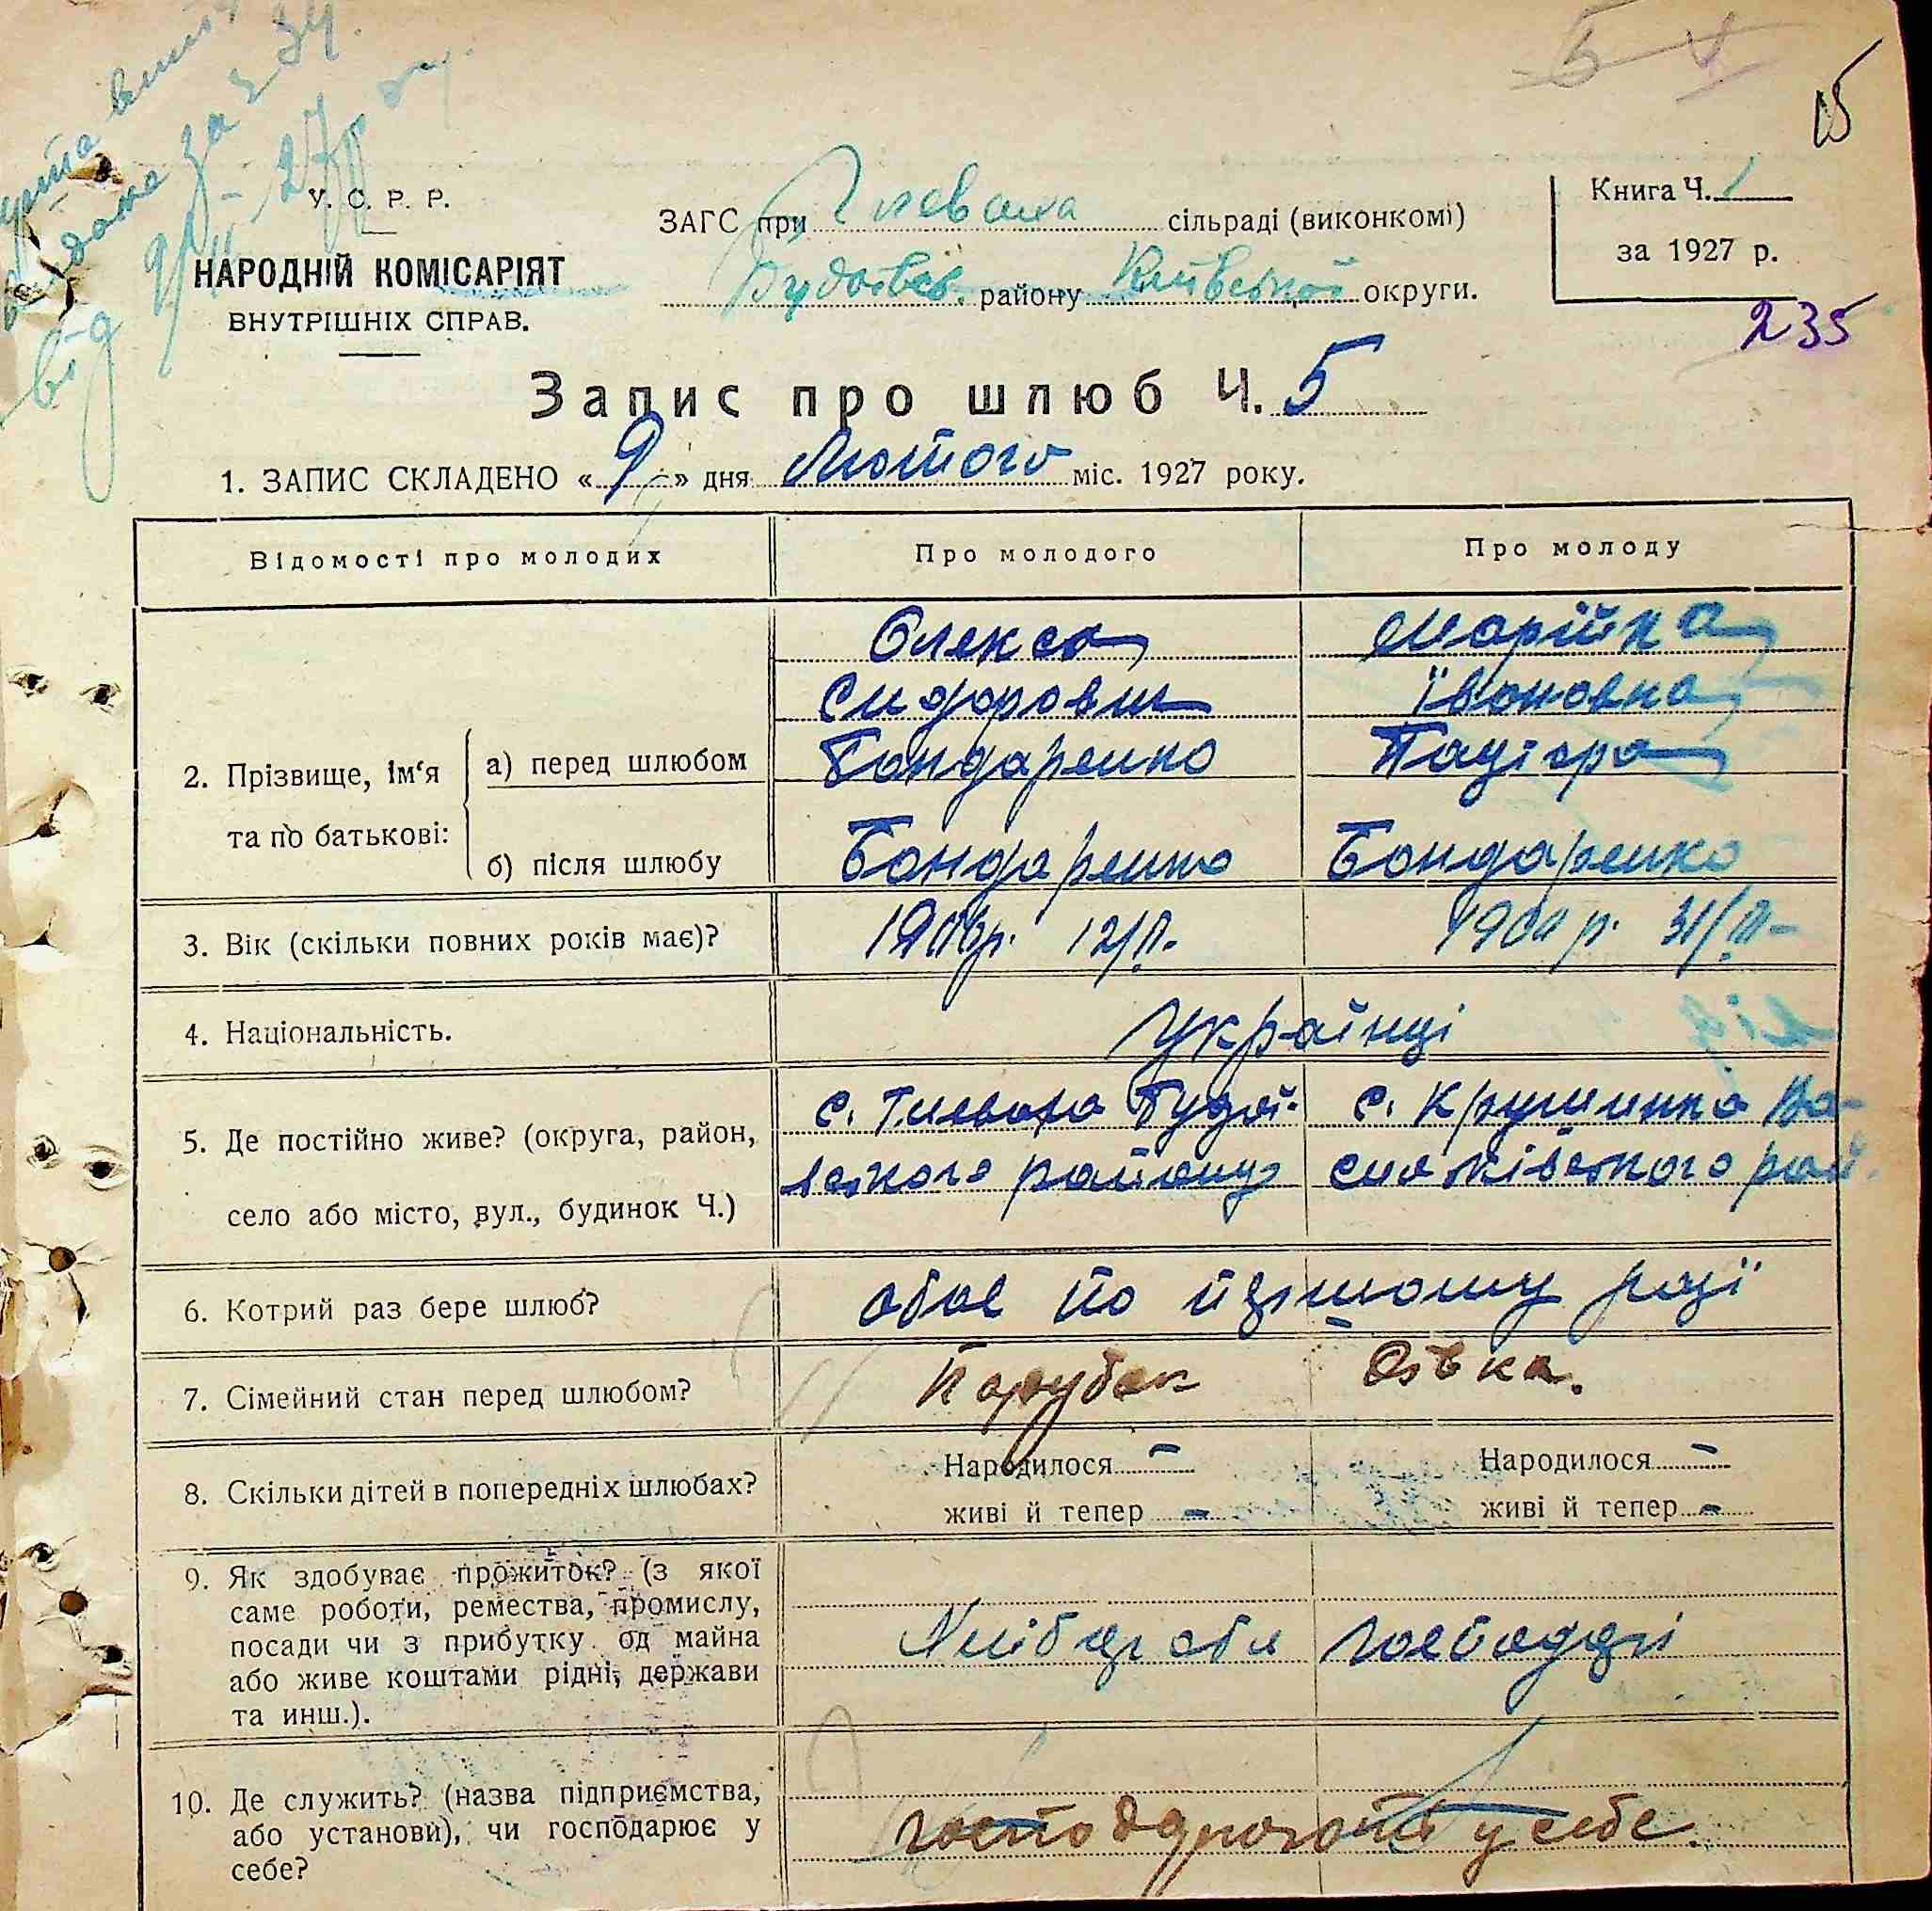 15
У. С. Р. Р.
НАРОДНІЙ КОМІСАРІЯТ
ВНУТРІШНІХ СПРАВ.
ЗАГС при Глеваха сільраді (виконкомі)
Будаївськ. району Київської округи.
Книга Ч. 1
за 1927 р.
235
Запис про шлюб Ч. 5
1. ЗАПИС СКЛАДЕНО « 9 » дня Лютого міс. 1927 року.
Відомості про молодих
Про молодого
Про молоду
2. Прізвище, ім‘я та по батькові:
а) перед шлюбом
Олекса
Сидорович
Бондаренко
Марійка
Івановна
б) після шлюбу
Бондаренко
Бондаренко
3. Вік (скільки повних років має)?
12/II.
4. Національність.
Українці
5. Де постійно живе? (округа, район,
село або місто, вул., будинок Ч.)
с. Глеваха Будаї-
вського району
с. Крушинка Ва-
сильківського рай.
6. Котрий раз бере шлюб?
обоє по першому разі
7. Сімейний стан перед шлюбом?
Парубок
Дівка.
8. Скільки дітей в попередніх шлюбах?
Народилося –
живі й тепер –
Народилося –
живі й тепер –
9. Як здобуває прожиток? (з якої
саме роботи, ремества, промислу,
посади чи з прибутку од майна
або живе коштами рідні, держави
та инш.).
10. Де служить? (назва підприємства,
або установи), чи господарює у
себе?
у себе.